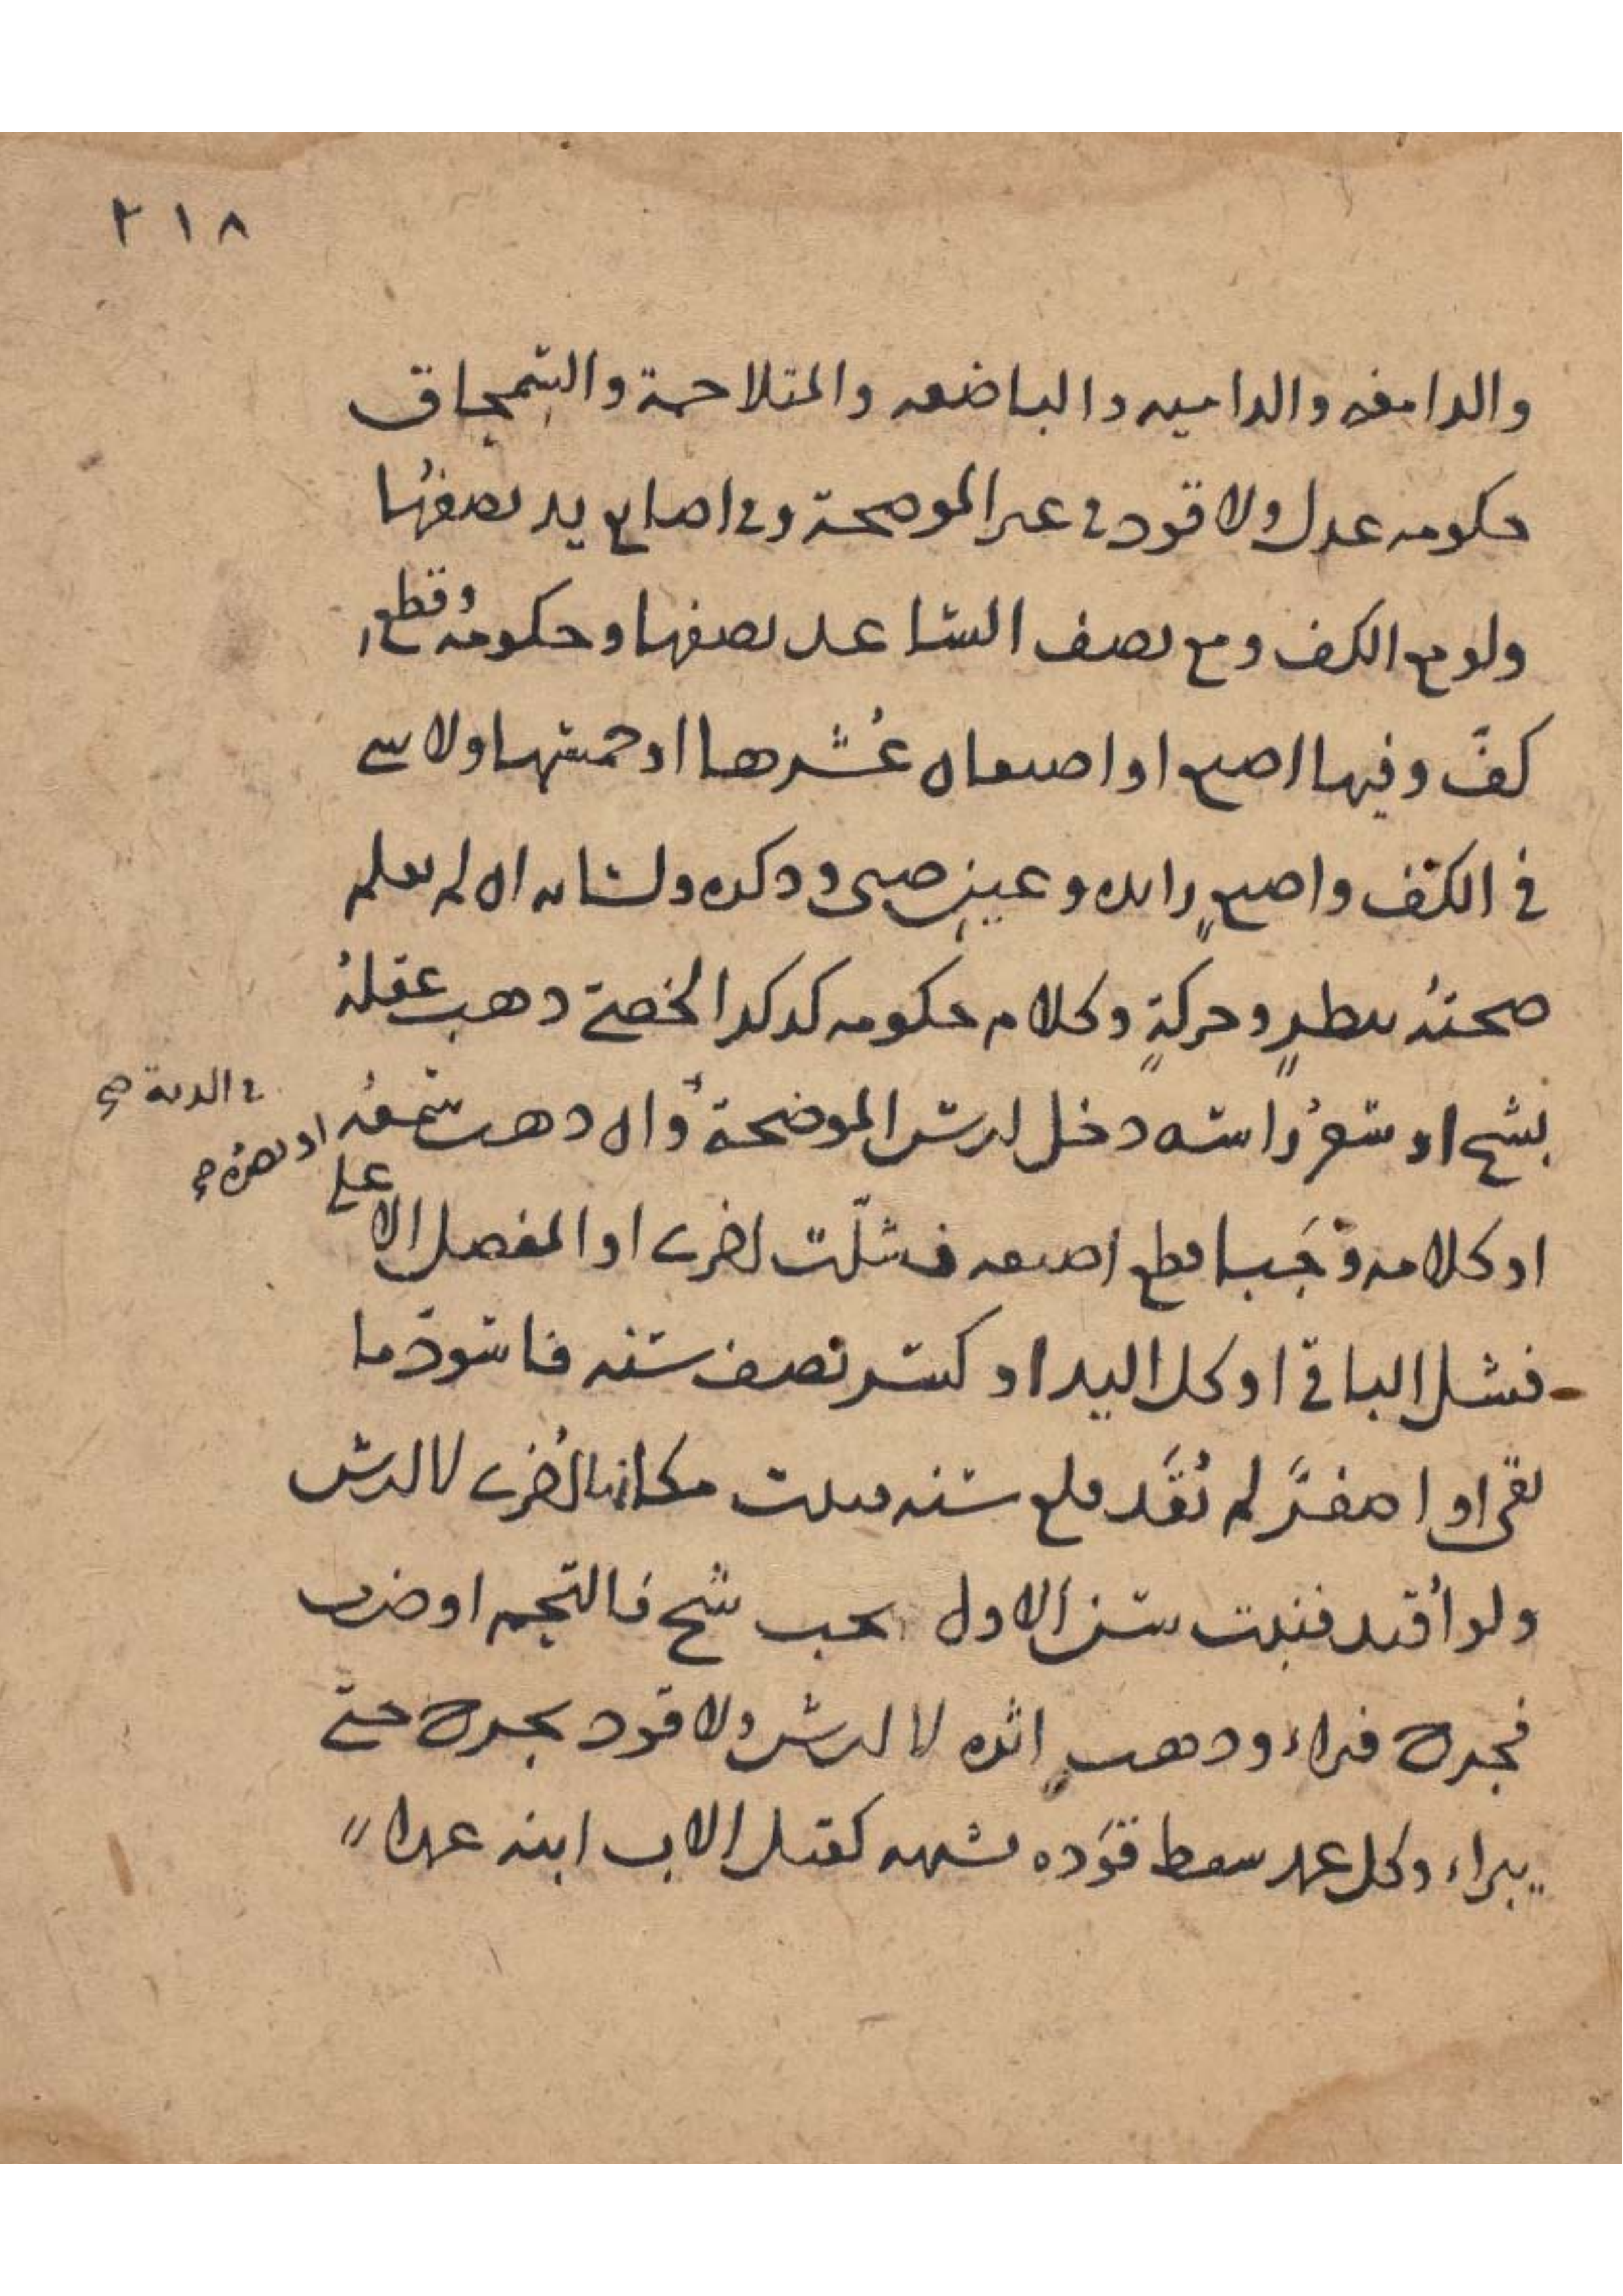 ٢١٨
والدامغه والداميه والباضعه والمتلاحمة والسمحاق
حكومه عدل ولا قود في غير الموضحة وفي اصابع يد نصفها
ولو مع الكف ومع نصف الساعد نصفها وحكومه وقطع
كف وفيها اصبع او اصبعان عشرها او خمسها ولا شي
في الكف واصبع زايده وعين صبي وذكره ولسانه ان لم يعلم
صحته بنظر وحركة وكلام حكومه كذكر الخصي ذهب عقله
بشج او شعر راسه دخل ارش الموضحة في الدية صح وان ذهب سمعه او بصره صح
او كلامه وجبا قطع اصبعه فشلت اخرى او المفصل الاعلى
فشل الباقي او كل اليد او كسر نصف سنه فاسود ما
بقي او اصفر لم يقد قلع سنه فنبتت مكانها اخرى لا ارش
ولو اقيد فنبت سن الاول يجب شج فالتحم او ضرب
فجرح فبراء وذهب اثره لا ارش ولا قود بجرح حتى
يبراء وكل عمد سقط قوده بشبهه كقتل الاب ابنه عمدا